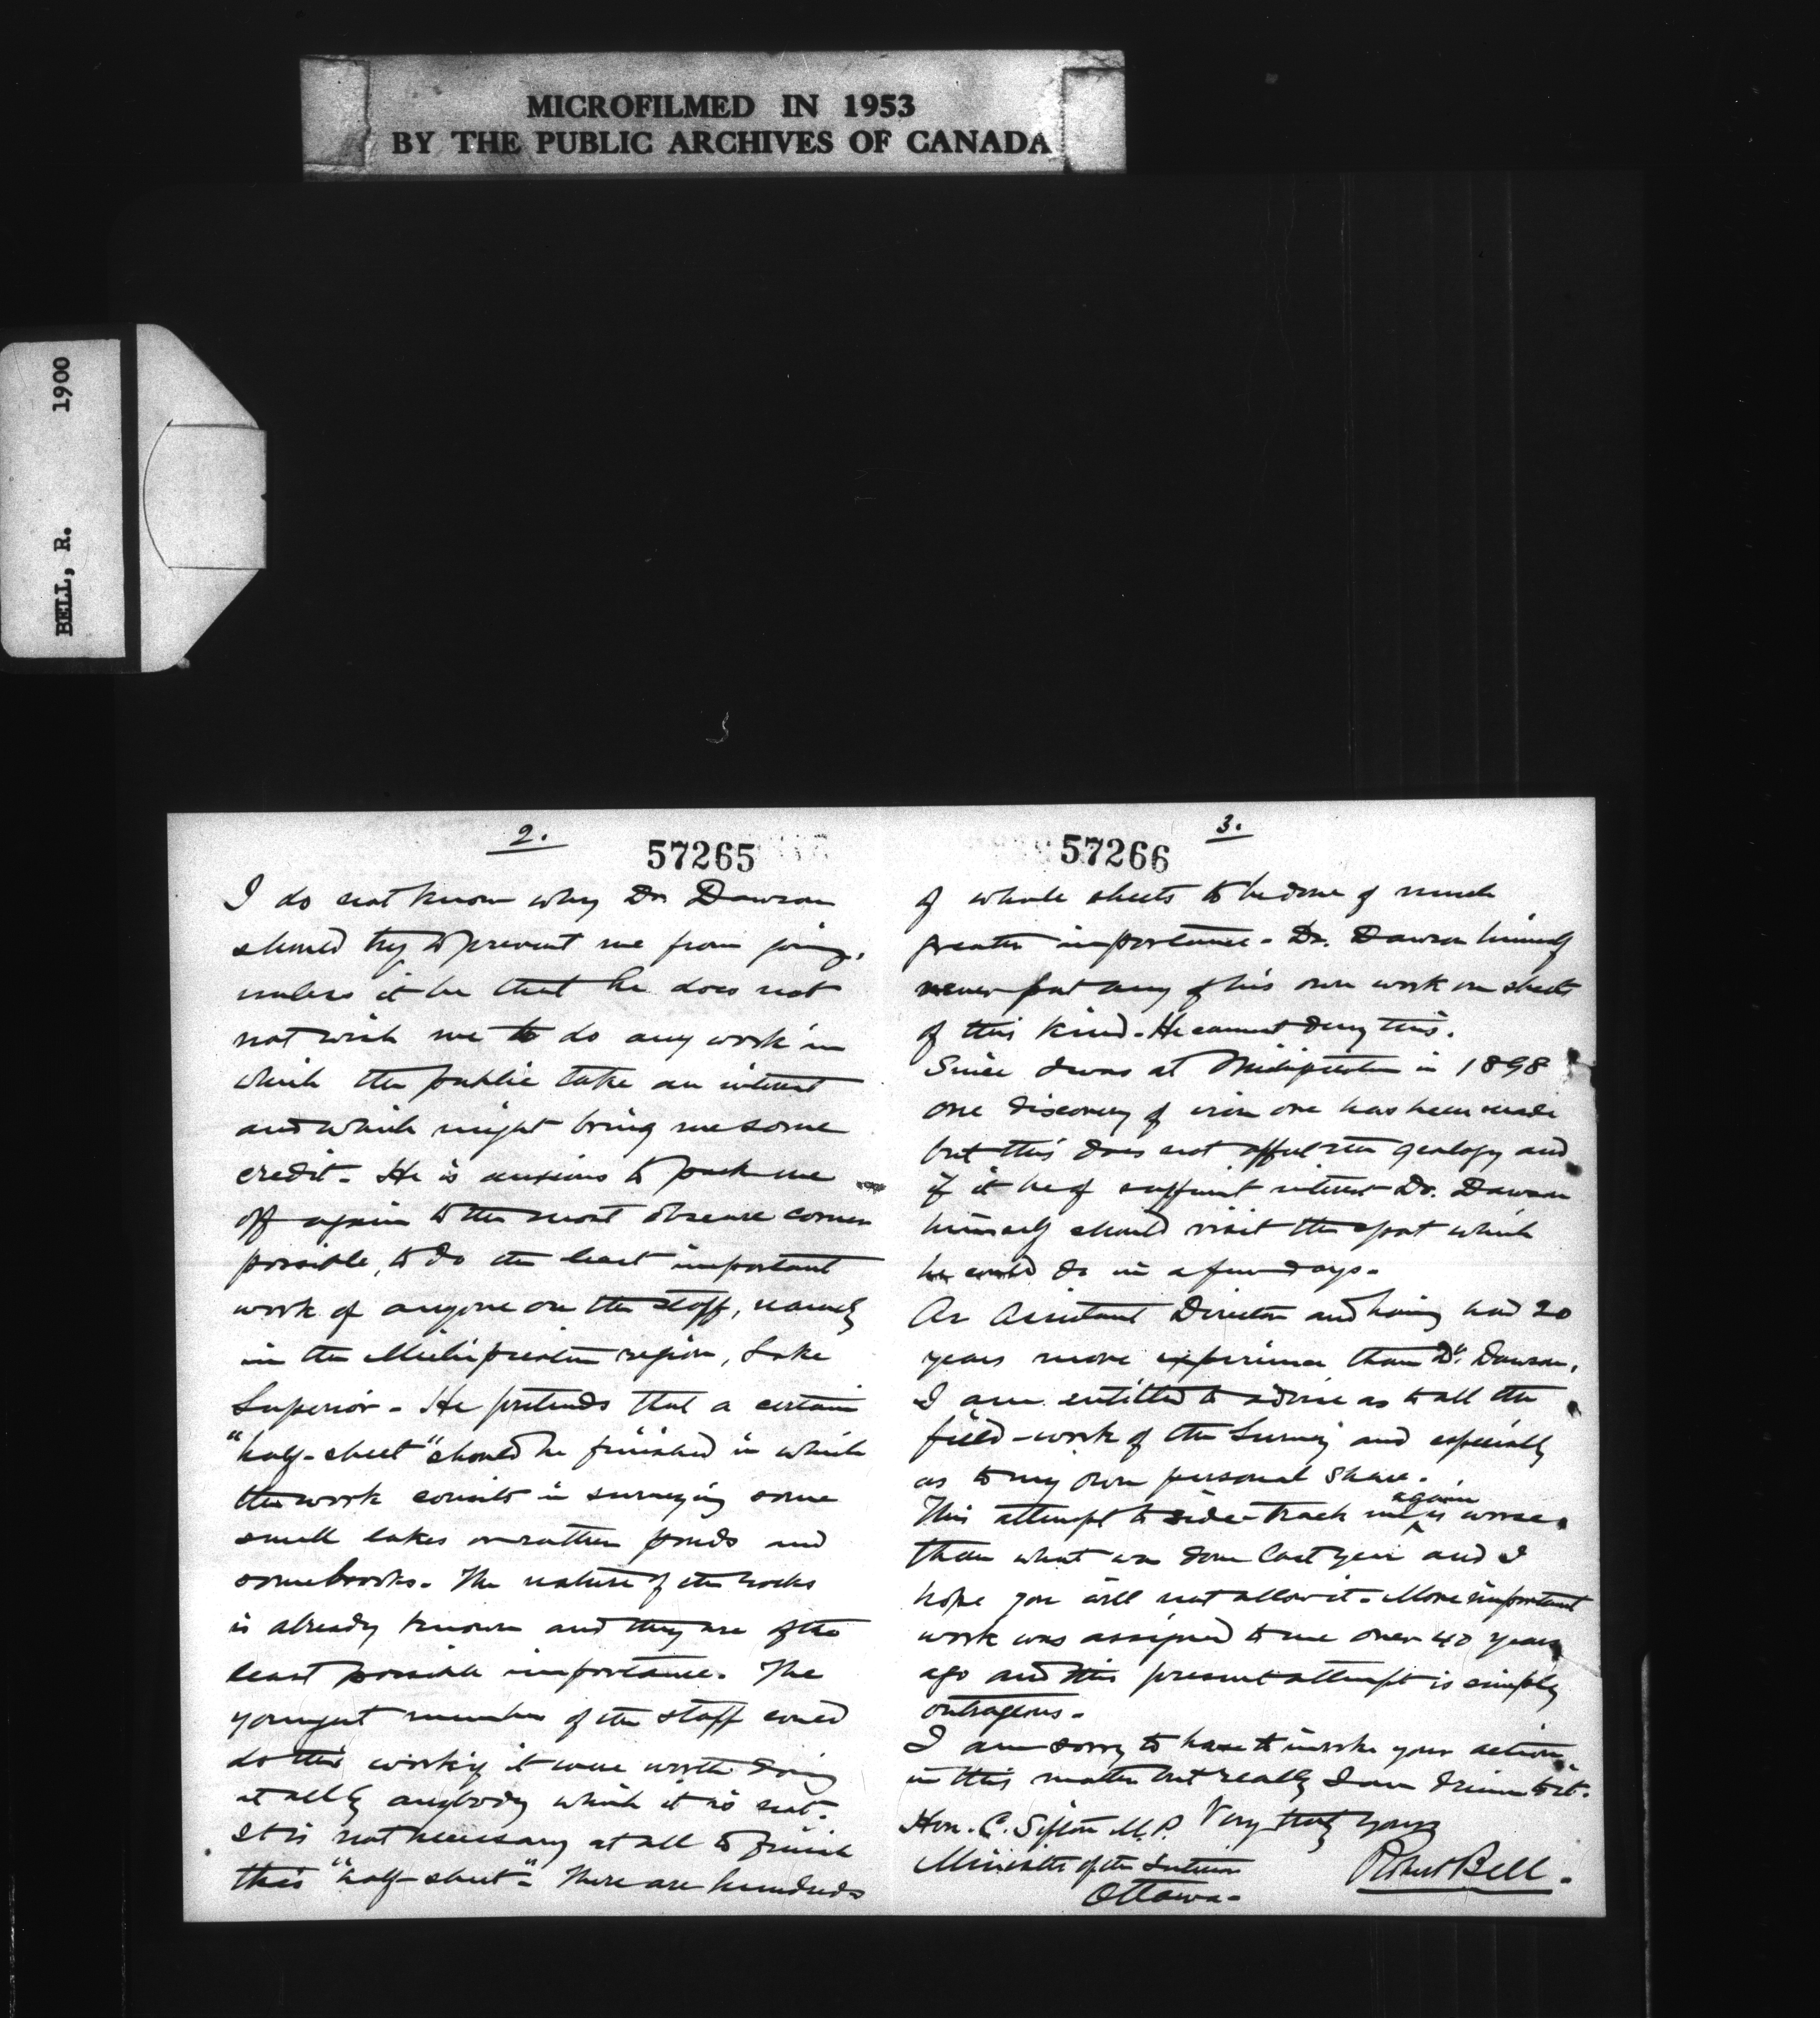 MICROFILMED IN 1953
BY THE PUBLIC ARCHIVES OF CANADA
BELL, R. 1900
2.
57265
I do not know why Dr. Dawson
should try to prevent me from going,
unless it be that he does not
not wish me to do any work in
which the public take an interest
and which might bring me some
credit. He is anxious to pack me
off again to the most obscure corner
possible, to do the least important
work of anyone on the staff, namely
in the Michipicoten region, Lake
Superior. He pretends that a certain
"half-sheet" should be finished in which
the work consists in surveying some
small lakes or rather ponds and
some brooks. The nature of the rocks
is already known and they are of the
least possible importance. The
youngest member of the staff could
do this work if it were worth doing
at all by anybody which it is not.
It is not necessary at all to finish
this "half-sheet". There are hundreds
3.
57266
of whole sheets to be done of much
greater importance. Dr. Dawson himself
never put any of his own work on sheets
of this kind. He cannot deny this.
Since I was at Michipicoten in 1898
one discovery of iron ore has been made
but this does not affect the geology and
if it be of sufficient interest Dr. Dawson
himself should visit the spot which
he could do in a few days.
As Assistant Director and having had 20
years more experience than Dr. Dawson,
I am entitled to advise as to all the
field-work of the Survey and especially
as to my own personal share.
This attempt to side-track me again is worse
than what was done last year and I
hope you will not allow it. More important
work was assigned to me over 40 years
ago and this present attempt is simply
outrageous.
I am sorry to have to invoke your action
in this matter but really I am driven to it.
Hon. C. Sifton M.P. Very truly yours
Minister of the Interior Robert Bell.
Ottawa.